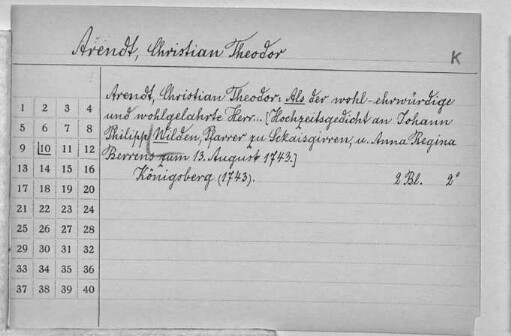 Arendt, Christian Theodor
K
Arendt, Christian Theodor: Als der wohl-ehrwürdige
und wohlgelahrte Herr... [Hochzeitsgedicht an Johann
Philipp Wilden, Pfarrer zu Skaisgirren, u. Anna Regina
Berrens zum 13. August 1743.]
Königsberg (1743). 2 Bl. 2°
1 2 3 4
5 6 7 8
9 10 11 12
13 14 15 16
17 18 19 20
21 22 23 24
25 26 27 28
29 30 31 32
33 34 35 36
37 38 39 40